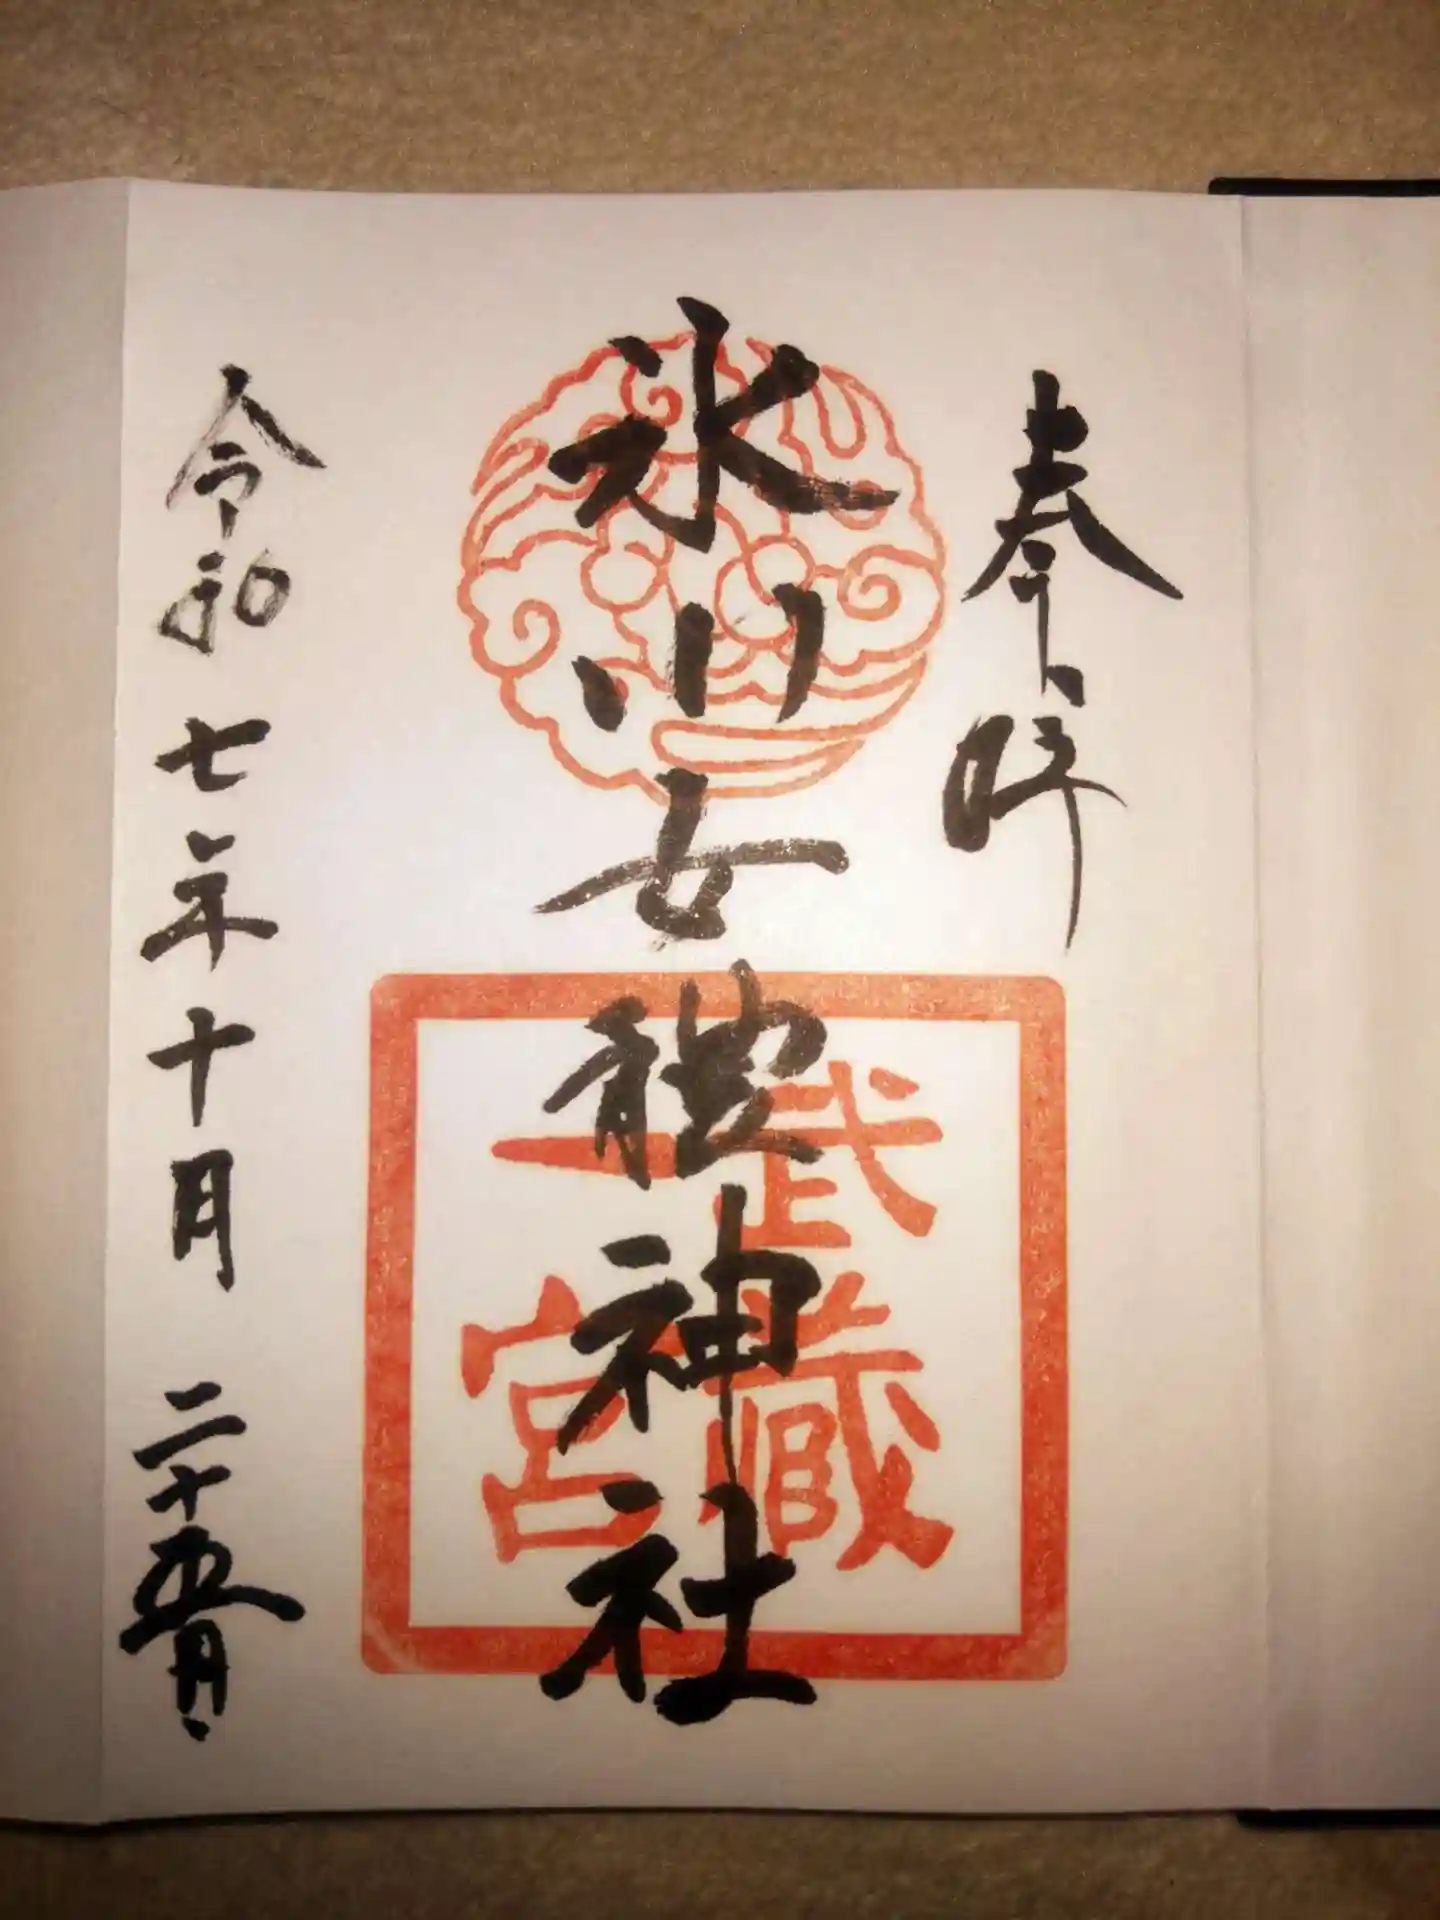 奉拝
氷川女體神社
武蔵
一宮
令和七年十月二十五日